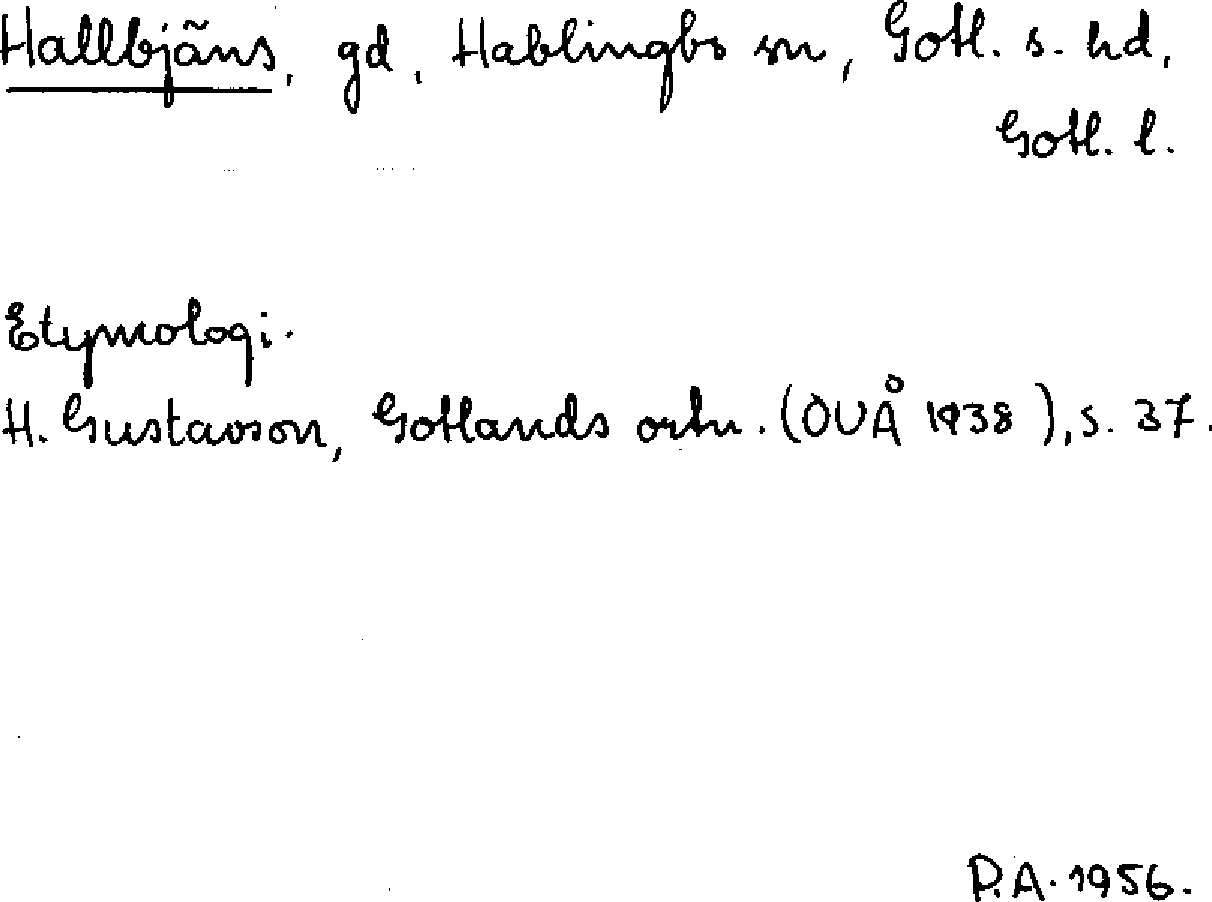 Hallbjäns, gd, Hablingbo sn, Gotl. s. hd,
Gotl. l.
Etymologi.
H. Gustavson, Gotlands ortn. (OUÅ 1938), s. 37.
P.A. 1956.